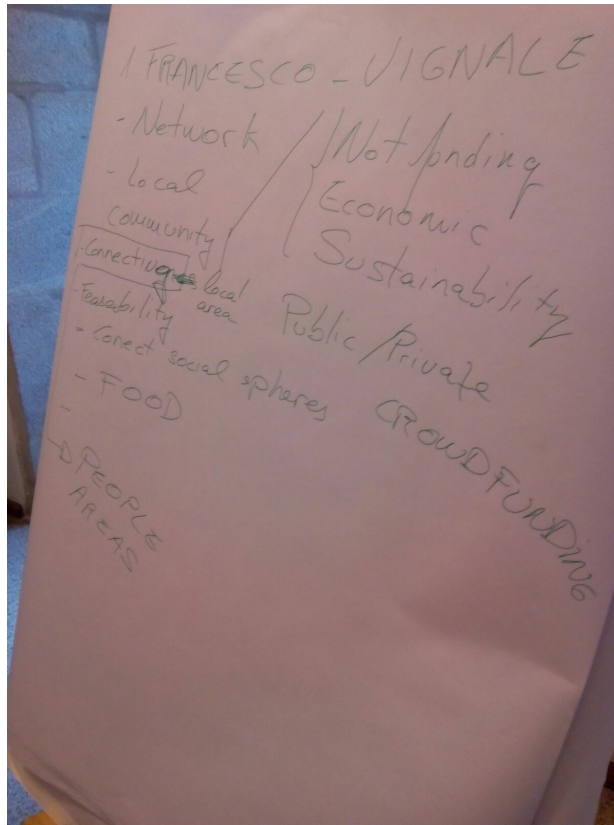 1 FRANCESCO - VIGNALE
- Network
- Local
community
- Connecting local
area
- Feasability
- Conect social spheres
- FOOD
-
PEOPLE
AREAS
Not fonding
Economic
Sustainability
Public/Private
CROWDFUNDING